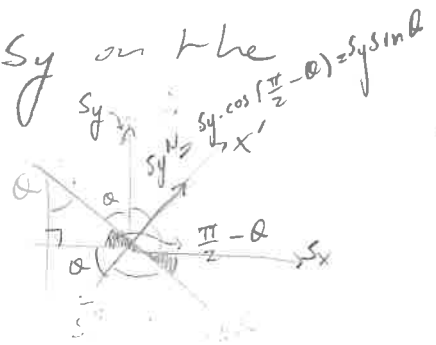 Sy on the
Sy
Sy'' = Sy·cos(π/2 - θ) = Sy sin θ
x'
θ
θ
π/2 - θ
θ
Sx